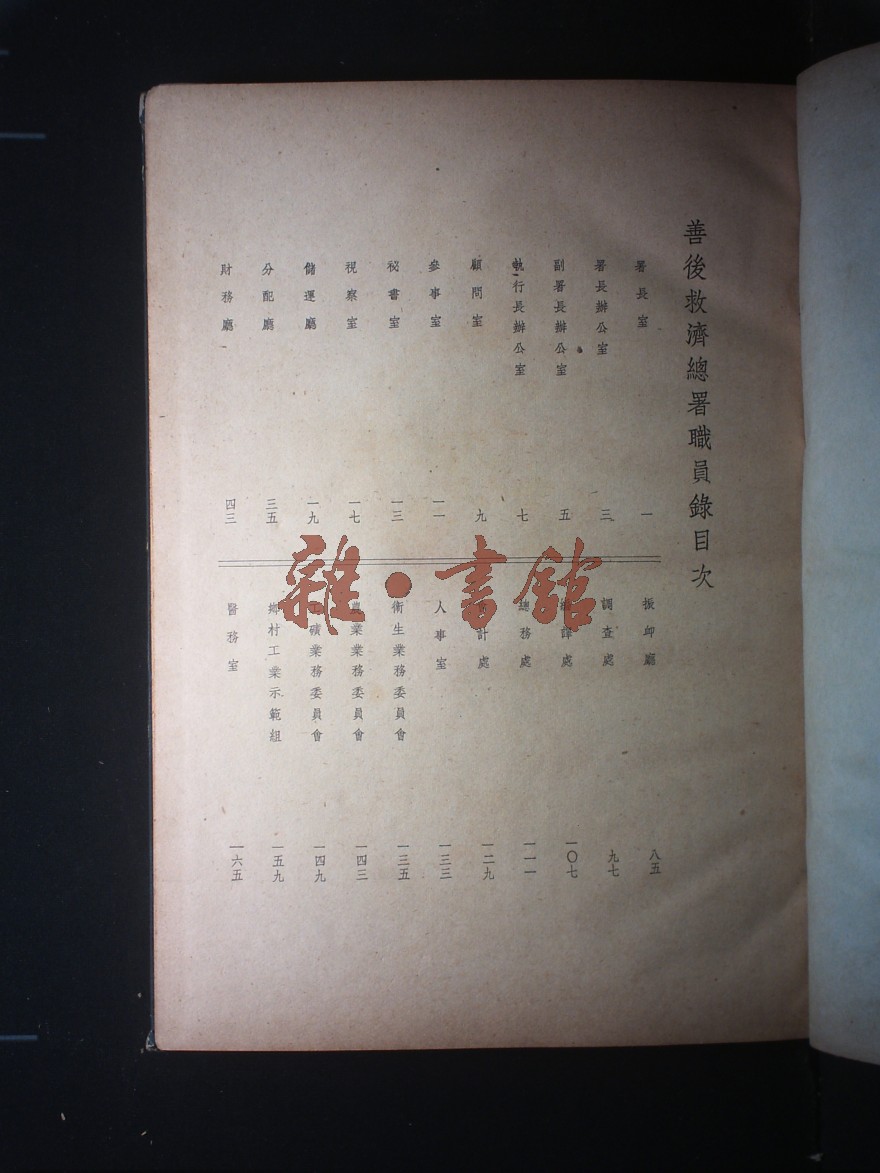 善後救濟總署職員錄目次
署長室 一
署長辦公室 三
副署長辦公室 五
執行長辦公室 七
顧問室 九
參事室 一一
秘書室 一三
視察室 一七
儲運廳 一九
分配廳 三五
財務廳 四三
振卹廳 八五
調查處 九七
編譯處 一〇七
總務處 一一一
會計處 一二九
人事室 一三三
衛生業務委員會 一三五
農業業務委員會 一四三
工礦業務委員會 一四九
鄉村工業示範組 一五九
醫務室 一六五
雜·書館